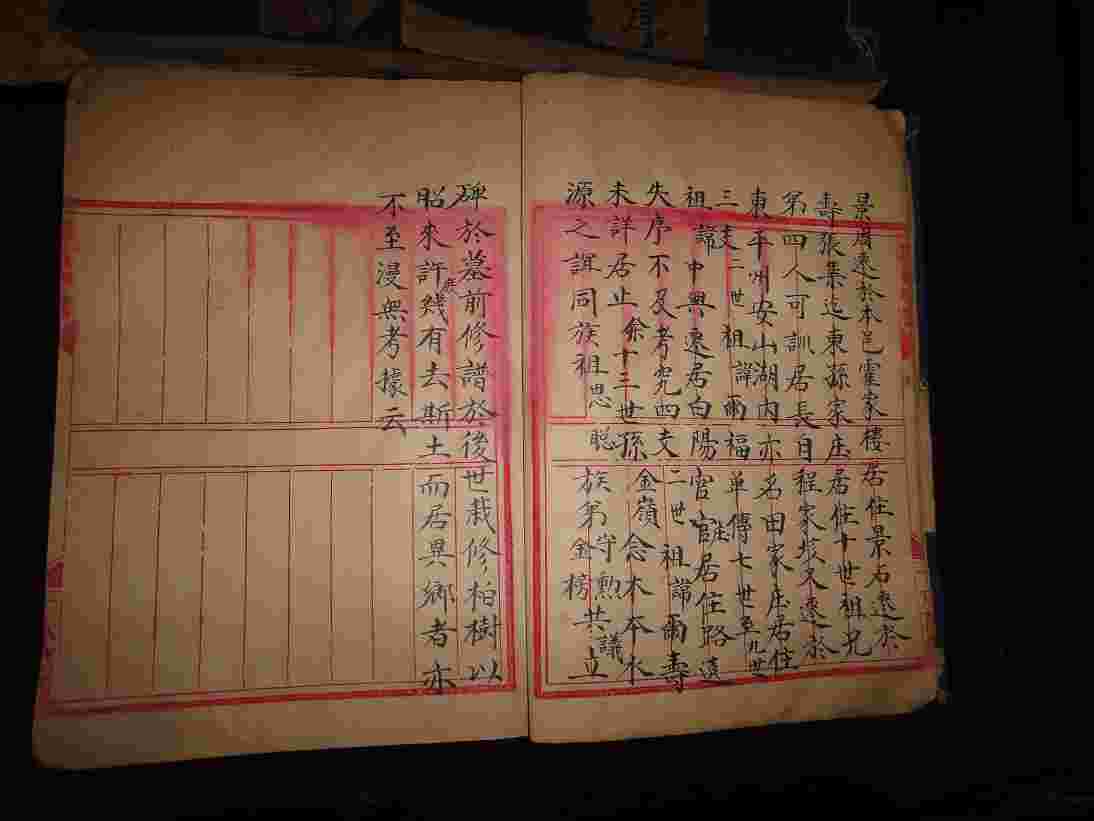 景眉遷於本邑霍家樓居住景石遷於
壽張集迄東孫家庄居住十世祖兄
第四人可訓居長自程家垓又遷於
東平州安山湖內亦名田家庄居住
三支二世祖諱爾福单傳七世至九世
祖諱中興遷居白陽官庄官居住路遠
失序不及考究四支二世祖諱爾壽
未詳居止余十三世孫金嶺念木本水
源之誼同族祖思聪族弟守勲金榜共議立
碑於墓前修譜於後世栽修柏樹以
昭來許庶幾有去斯土而居異鄉者亦
不至漫無考據云